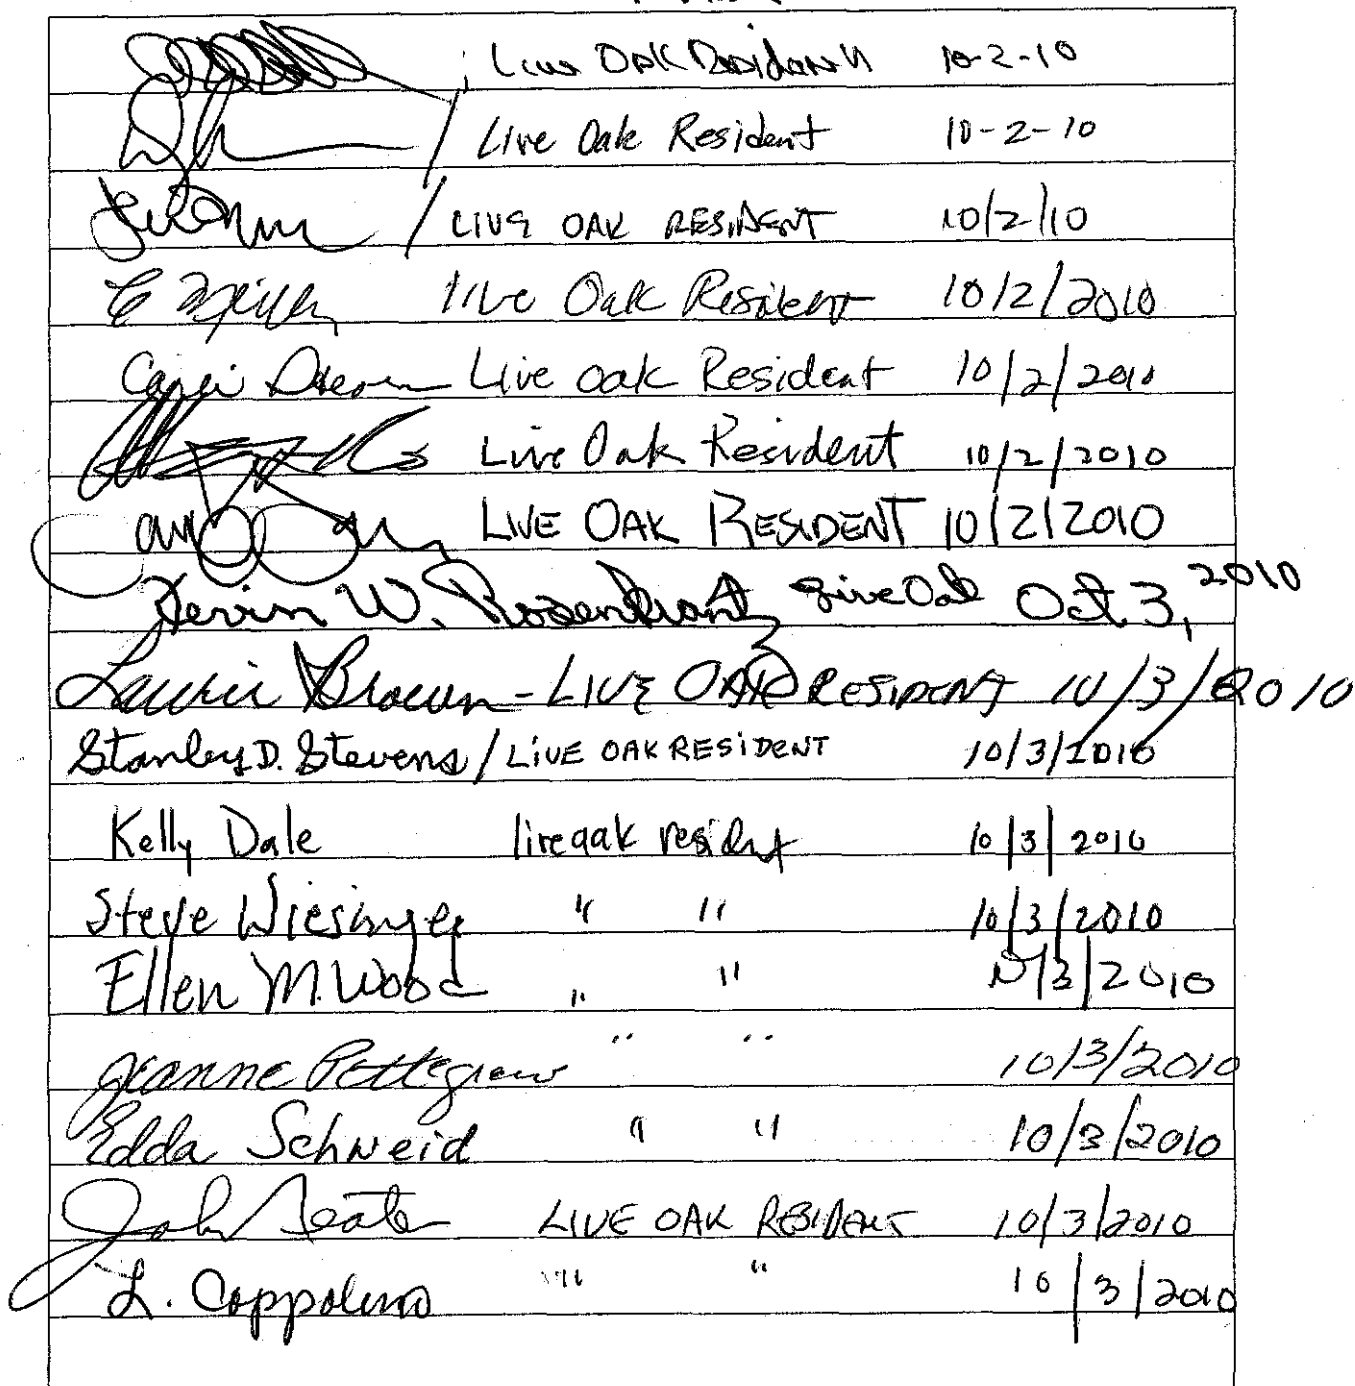 Live Oak Resident 10-2-10
/ Live Oak Resident 10-2-10
/ LIVE OAK RESIDENT 10/2/10
live Oak Resident 10/2/2010
Live oak Resident 10/2/2010
Live Oak Resident 10/2/2010
LIVE OAK RESIDENT 10/2/2010
Kevin W. Rosenkrantz Live Oak Oct 3, 2010
Laurie Brown - LIVE OAK RESIDENT 10/3/2010
Stanley D. Stevens / LIVE OAK RESIDENT 10/3/2010
Kelly Dale live oak resident 10/3/2010
Steve Wiesinger " " 10/3/2010
Ellen M. Wood " " 10/3/2010
Jeanne Pettegrew " " 10/3/2010
Edda Schneid " " 10/3/2010
John LIVE OAK RESIDENT 10/3/2010
L. Coppolino " " 10/3/2010